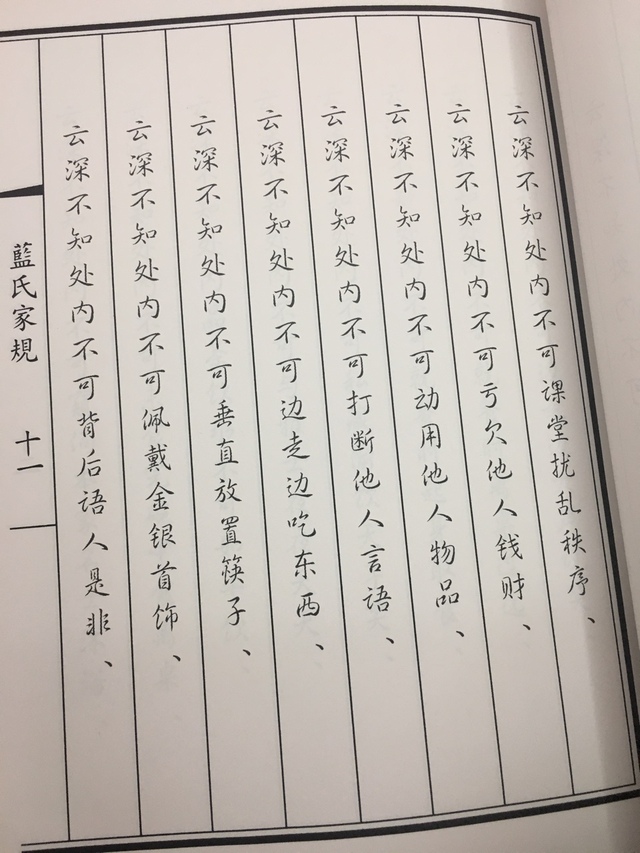 云深不知处内不可课堂扰乱秩序、
云深不知处内不可亏欠他人钱财、
云深不知处内不可动用他人物品、
云深不知处内不可打断他人言语、
云深不知处内不可边走边吃东西、
云深不知处内不可垂直放置筷子、
云深不知处内不可佩戴金银首饰、
云深不知处内不可背后语人是非、
藍氏家規
十一